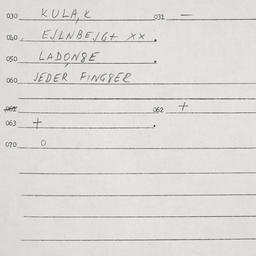 030 KULA,K 031 —
040 EJLNBEJGT XX
050 LADONSE
060 JEDER FINGSER
061 062 +
063 +
070 0